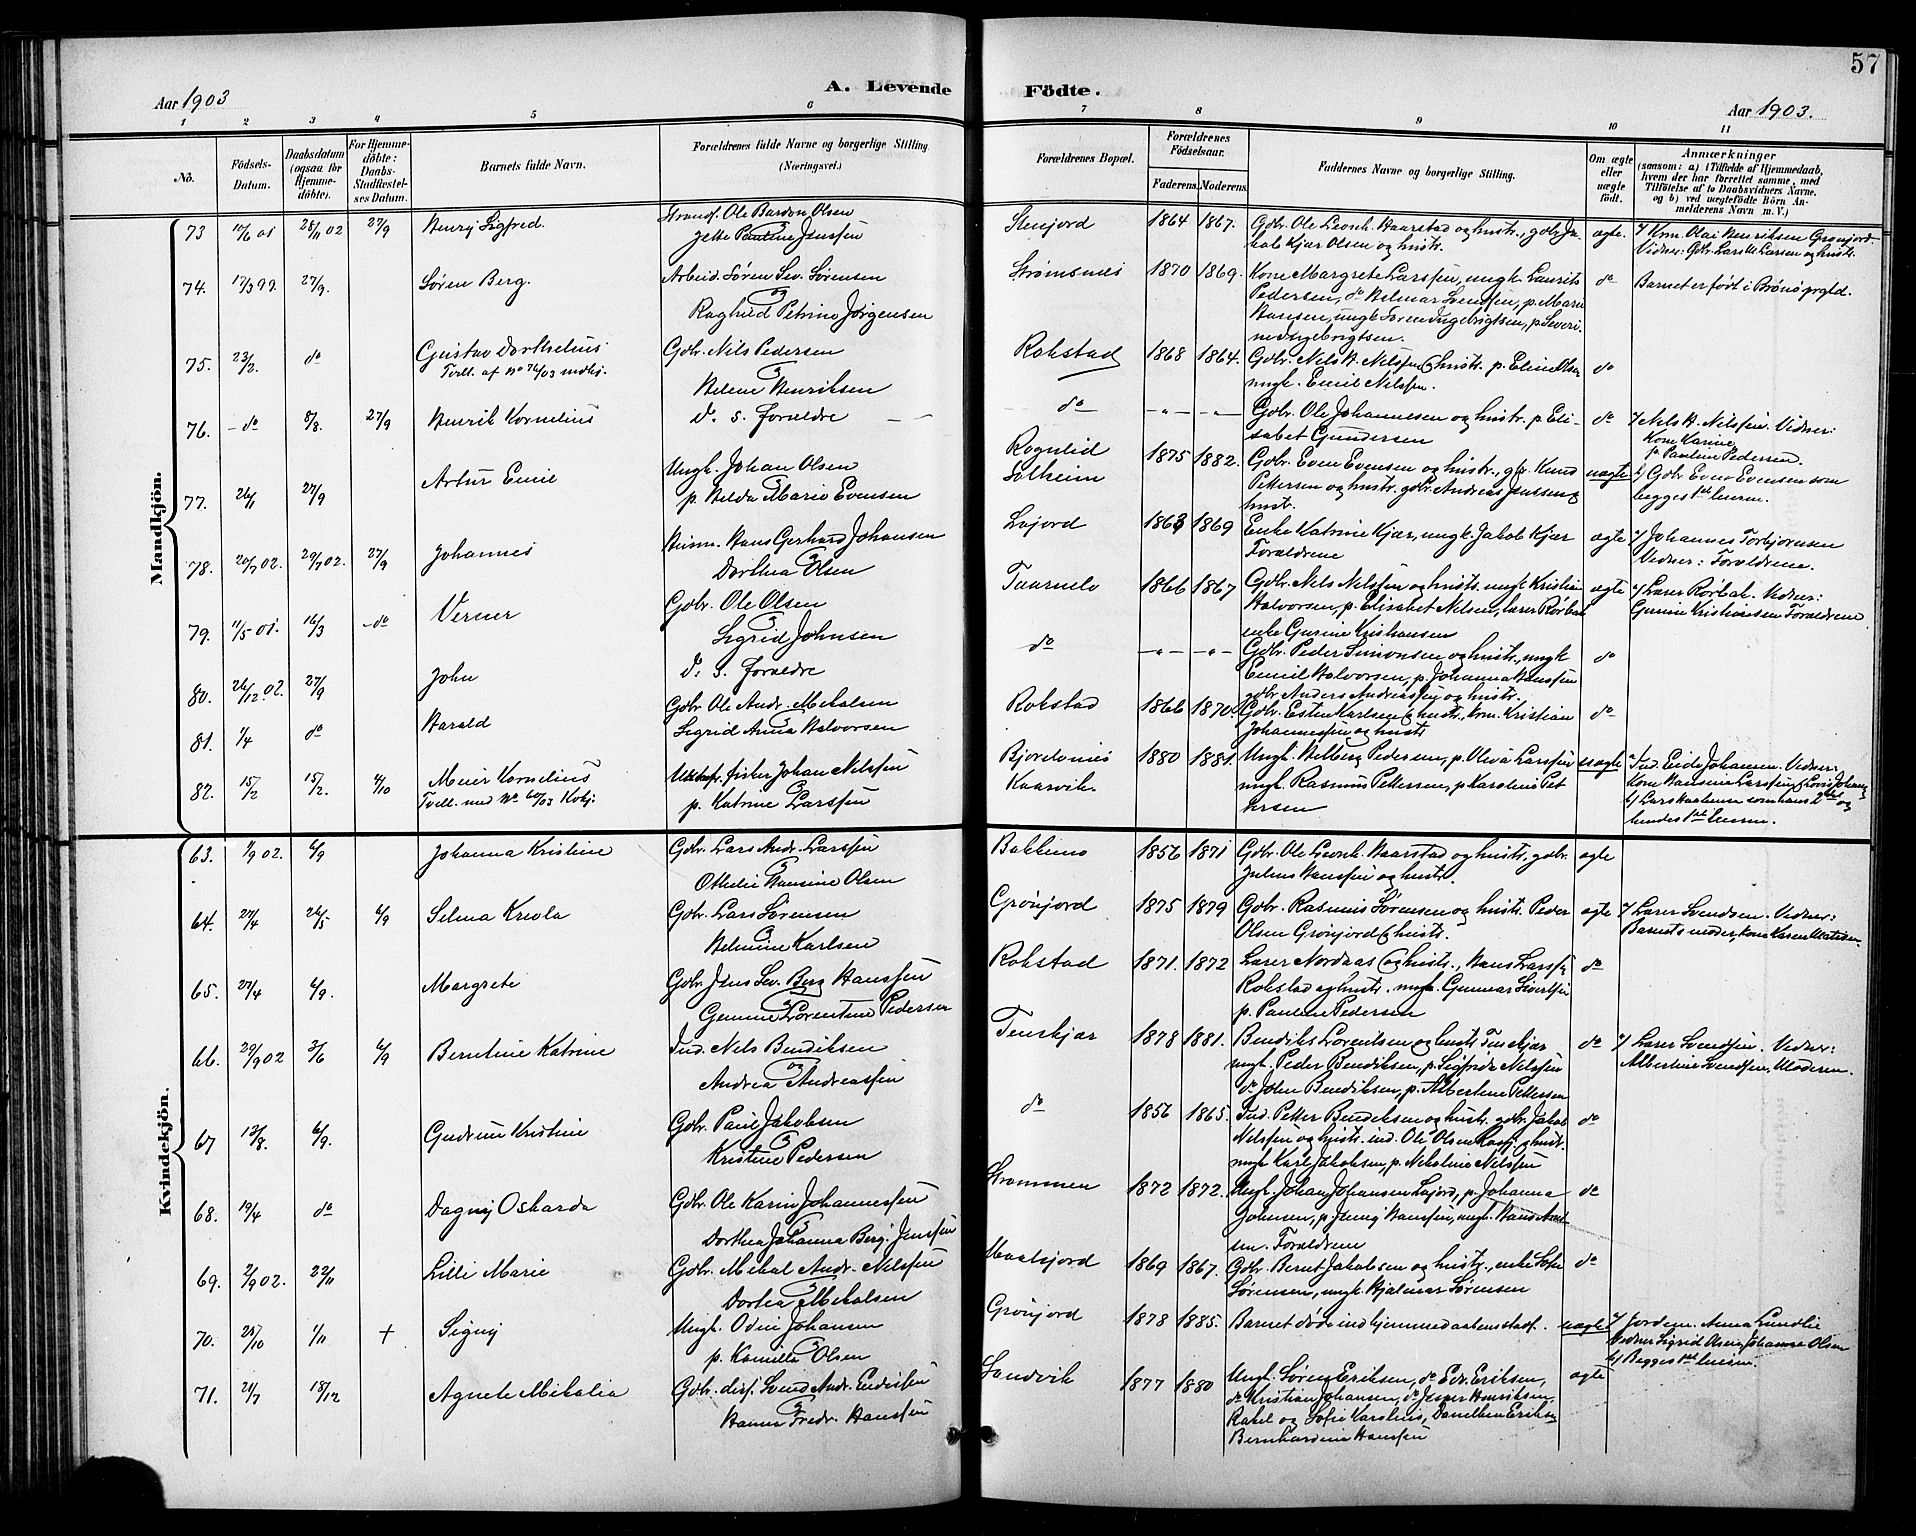 57
Aar 1903
A. Levende
Födte.
Aar 1903.
1 2 3 4 5 6 7 8 9 10 11
No.
Födsels-Datum.
Daabsdatum (ogsaa for Hjemme-döbte).
For Hjemme-döbte: Daabs-Stadfæstel-ses Datum.
Barnets fulde Navn.
Forældrenes fulde Navne og borgerlige Stilling (Næringsvei.)
Forældrenes Bopæl.
Forældrenes Födselsaar.
Faderens. Moderens.
Faddernes Navne og borgerlige Stilling.
Om ægte eller uægte födt.
Anmærkninger
(saasom: a) i Tilfælde af Hjemmedaab,
hvem der har forrettet samme, med
Tilföielse af to Daabsvidners Navne,
og b) ved uægtefödte Börn An-
melderens Navn m. V.)
Mandkjön.
73 10/6 01 28/11 02 27/9 Henry Sigfred. Strands. Ole Bardon Olsen
Jette Pauline Jenssen
Stenjord 1864 1867. Gdbr. Ole Leonh. Haarstad og hustr., gdbr. Ja-
kob Kjær Olsen og hustr.
ægte.
Vidner: Gdbr. Lars M. Larsen og hustr.
74. 17/3 99. 27/9. Søren Berg. Arbeid. Søren Sev. Sørensen
og
Raghild Petrine Jørgensen
Strømsnes 1870 1869. Kone Margrete Larssen, ungk. Laurits
Pedersen, do Helmar Svendsen, p. Marie
Hansen, ungk. Soren Ingebrigtsen, p. Severi-
ne Ingebrigtsen.
do Barnet er født i Brønø prgld.
75. 23/2. do Gustav Dorthelius
Tvill. af No 76/03 mdkj.
Gdbr. Nils Pedersen
og
Helene Henriksen
Rokstad 1868 1864. Gdbr. Nils H. Nilssen & hustr. p. Eline Olsen
ungk. Emil Nilssen.
do
76. -do 8/8. 27/9 Henrik Kornelius d. s. forældre
do -"- -"- Gdbr. Ole Johannesen og hustr. p. Eli-
sabet Gundersen
do Nils H. Nilssen. Vidner:
Kone Karine,
p. Pauline Pedersen.
77. 26/1 27/9 Artur Emil Ungk. Johan Olsen
p. Helda Marie Evensen
Rognlid
Solheim
1875 1882. Gdbr. Even Evensen og hustr., Knud
Pettersen og hustr. gdbr. Andreas Jenssen &
hustr.
uægte b/ Gdbr. Even Evensen som
begges 1ste leierm.
78. 20/7 02. 29/7 02. 27/9 Johannes Husm. Hans Gerhard Johansen
og
Dorthea Olsen
Lajord 1863 1869 Enke Katrine Kjær, ungk. Jakob Kjær
Forældrene
ægte a/ Johannes Torbjørnsen
Vidner: Forældrene.
79. 11/5 01. 16/3 -do Verner Gdbr. Ole Olsen
og
Sigrid Johnsen
1866 1867 Gdbr. Nils Nilssen og hustr. ungk. Kristian
Halvorsen, p. Elisabet Nilsen, lærer Rørbak
enke Gurine Kristiansen
ægte a/ Lærer Rørbak. Vidner:
Gurine Kristiansen Forældrene
80. 26/12 02. 27/9 John d. s. forældre
do -"- -"- Gdbr. Peder Simonsen og hustr., ungk
Emil Halvorsen, p. Johanna Hanssen
gdbr. Anders Andreassen og hustr.
do
81. 1/4 do Harald Gdbr. Ole Andr. Mikalsen
Sigrid Anna Halvorsen
Rokstad 1866 1870. Gdbr. Esten Karlsen & hustr., kom. Kristian
Johannessen og hustr.
do
82. 15/2 15/2. 4/10 Meier Kornelius
Tvill. med No 60/03 Kvkj.
fisker Johan Nilssen
p. Katrine Larssen
Kaarvik. 1880 1881. Ungk. Helberg Pedersen, p. Oliva Larssen
ungk. Rasmus Pettersen, p. Karoline Pet
ersen
uægte Johansen. Vidner:
Kone Hansine Larssen
hendes 1ste leierm.
Kvindekjön.
63. 1/9 02. 6/9 Johanna Kristine Gdbr. Lars Andr. Larssen
og
Othelie Hansine Olsen
1856 1871 Gdbr. Ole Leonh. Haarstad og hustr. gdbr.
Julius Hanssen og hustr.
ægte
64. 27/4 26/5 6/9 Selma Kreola Gdbr. Lars Sørensen
og
Helmine Karlsen
Grønjord 1875 1879 Gdbr. Rasmus Sørensen og hustr. Peder
Olsen Grønjord & hustr.
ægte a/ Lærer Svendsen. Vidner:
Barnets moder, kone Karen
65. 27/4 6/9. Margrete Gdbr. Jens Sev. Berg Hanssen
og
Gunine Lorentine Pedersen
Rokstad 1871. 1872 Lærer Nordaas & hustr., Hans Larssen
Rokstad og hustr. ungk. Gunnar Sivertsen
p. Pauline Pedersen
do
66. 29/9 02 3/6 6/9 Berntine Katrine Ind. Nils Bendiksen
og
Andrea Andreassen
Tenskjær 1878 1881. Bendiks Lorentsen og hustr. Tenskjær
ungk. Peder Bendiksen, p. Sigfride Nilssen
do John Bendiksen, p. Albertine Pettersen
do a/ Lærer Svendsen. Vidner:
Albertine Svendsen, Moderen.
67 13/8. 6/9. Gudrun Kristine Gdbr. Paul Jakobsen
og
Kristine Pedersen
do 1856 1865. Ind. Petter Bendiksen og hustr. gdbr. Jakob
Nilssen og hustr. ind. Ole Olsen & hustr.
ungk. Karl Jakobsen, p. Nikoline Nilssen
do
68. 19/4 do Dagny Oskarda Gdbr. Ole Karin Johannessen
og
Dorthea Johanna Berg. Jenssen
Strømmen 1872 1872. Ungk. Johan Johansen Lajord, p. Johanna
Johnsen, p. Jenny Hanssen, ungk. Hans
Forældrene
do
69. 2/9 02. 22/11 Lilli Marie Gdbr. Mikal Andr. Nilssen
og
Dortea Mikalsen
1869 1867. Gdbr. Bernt Jakobsen og hustr., enke Sofie
Sørensen, ungk. Hjalmar Sørensen
do
70. 25/10 1/11 + Signy Ungk. Odin Johansen
p. Kamilla Olsen
Grønjord 1878 1885. Barnet døde ind hjemmedaabens stadf. uægte a/ Jordem. Anna Lundlie
Vidner Sigrid Olsen, Johanna Olsen
b/ Begges 1ste leierm.
71. 21/7 18/12 Agnete Mikalia Gdbr. disp. Svend Andr. Endresen
og
Hanna Fredr. Hanssen
Sandvik 1877 1880 Ungk. Søren Eriksen, do Edv. Eriksen,
do Kristian Johansen, do Jesper Henriksen
Rakel og Sofie Karolius, Danelken Eriksen
Bernhardine Hanssen
ægte